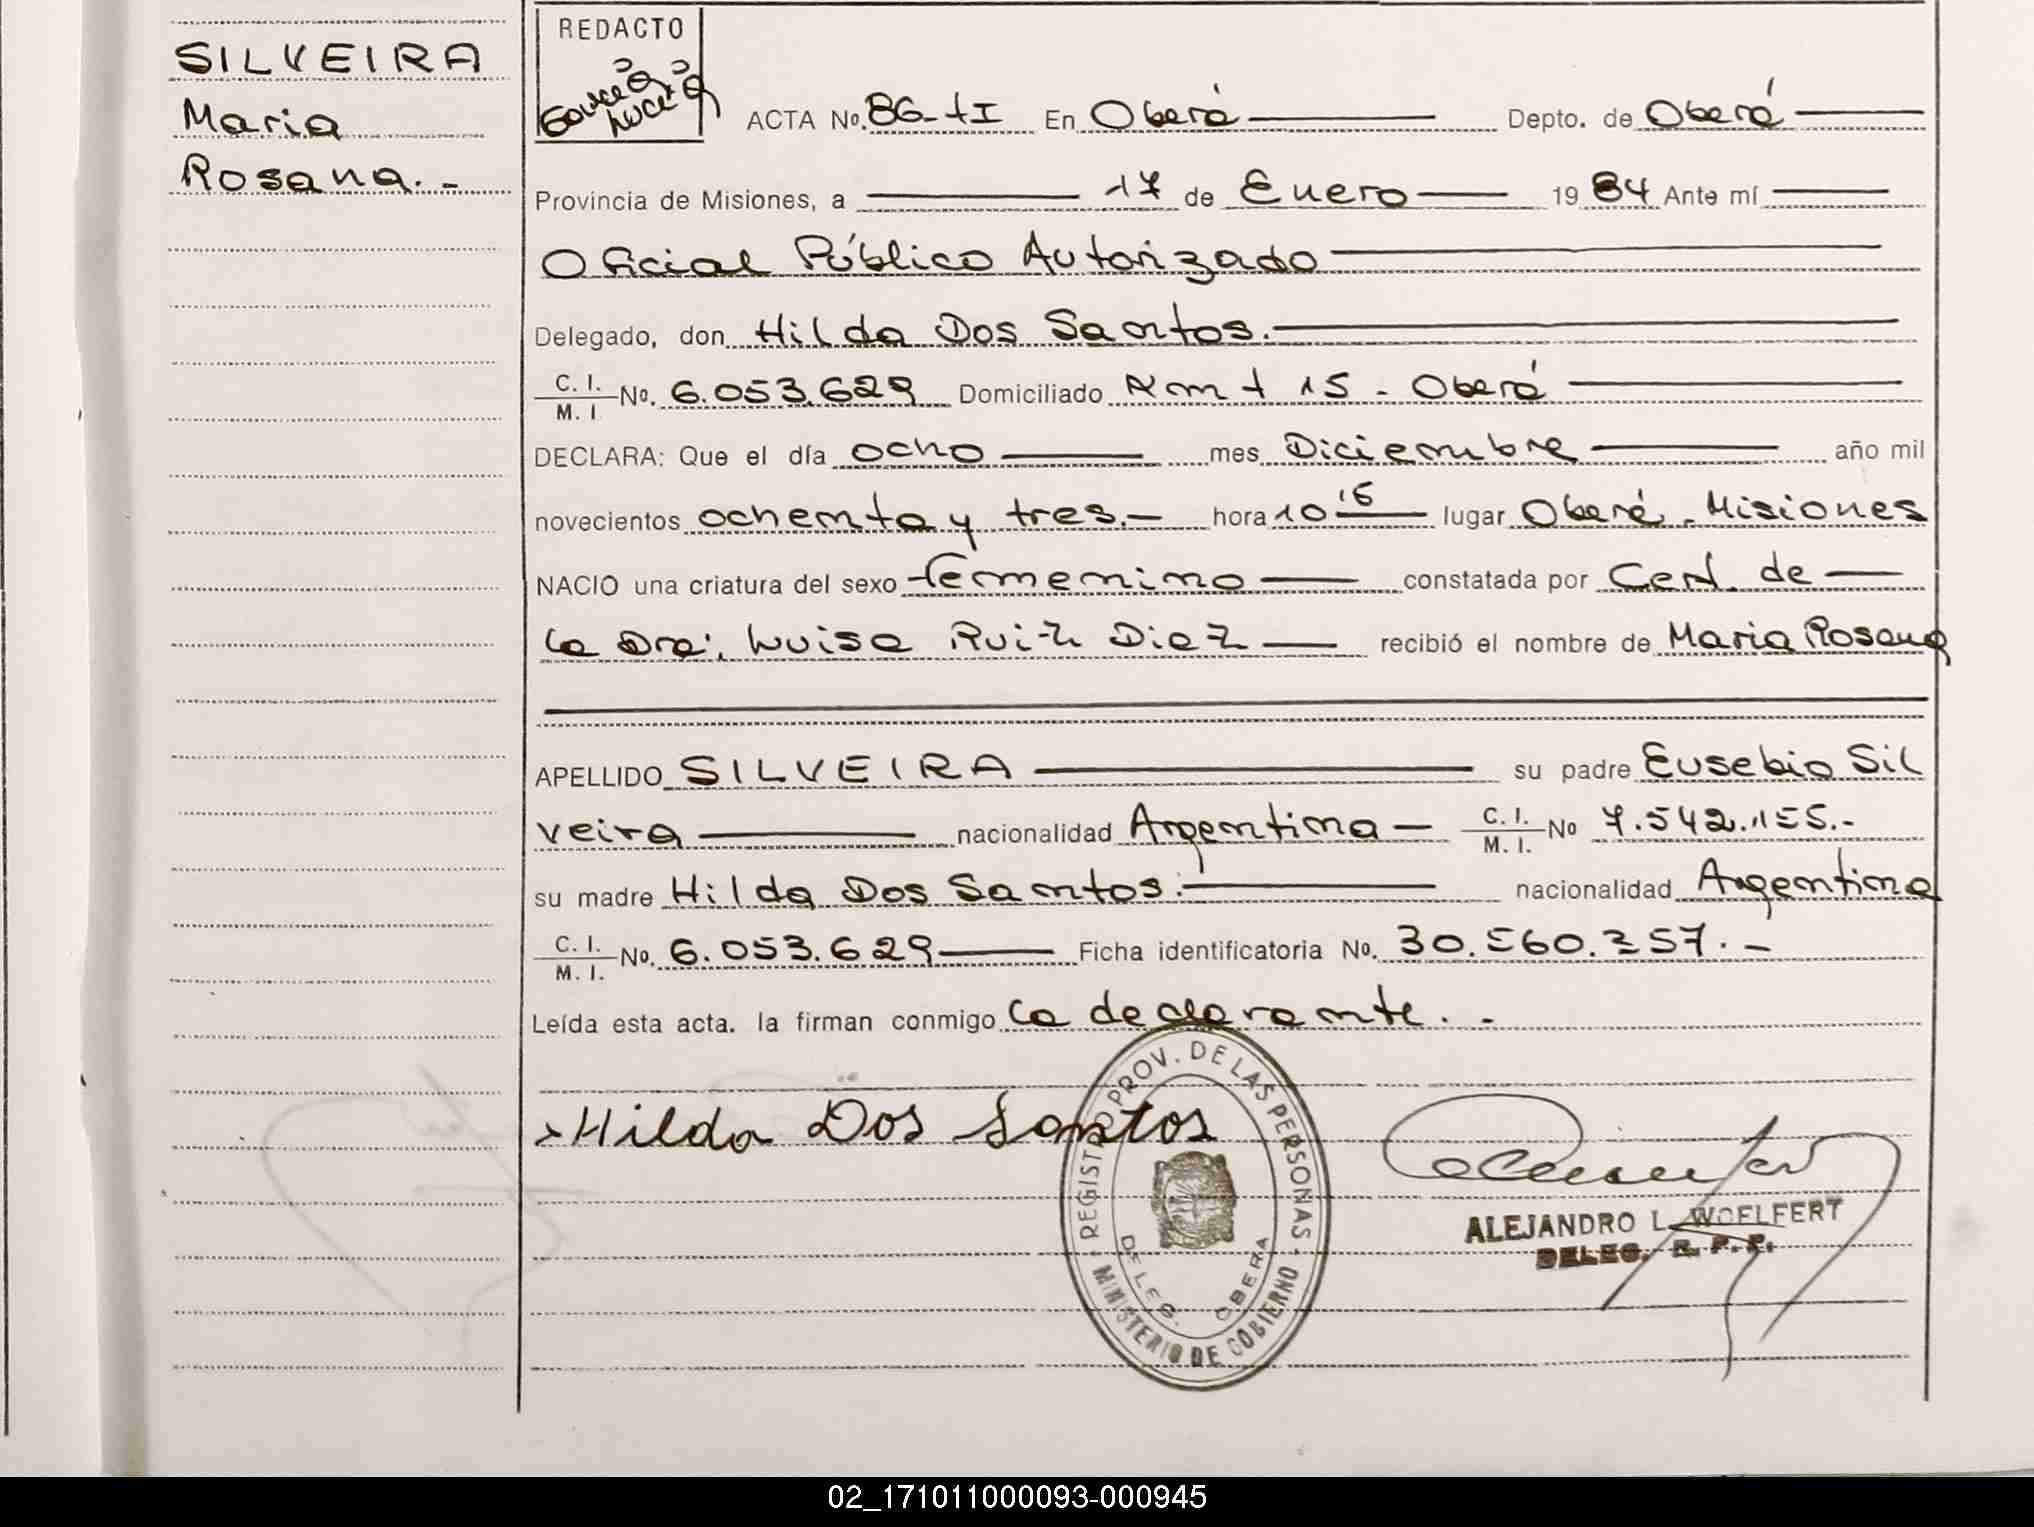 SILVEIRA
Maria
Rosana.-
REDACTO
ACTA No. 86-tI En Oberá Depto. de Oberá
Provincia de Misiones, a 17 de Enero 1984 Ante mí
Oficial Público Autorizado
Delegado, don Hilda Dos Santos.
C. I. / M. I No. 6.053.629 Domiciliado Km t 15 - Oberá
DECLARA: Que el día ocho mes Diciembre año mil
novecientos ochenta y tres.- hora 10 15 lugar Oberá - Misiones
NACIO una criatura del sexo femenino constatada por Cert. de
la Dra. Luisa Ruiz Diaz recibió el nombre de Maria Rosana
APELLIDO SILVEIRA su padre Eusebio Sil
veira nacionalidad Argentina - C. I. / M. I. No 7.542.155.-
su madre Hilda Dos Santos. nacionalidad Argentina
C. I. / M. I. No. 6.053.629 Ficha identificatoria No. 30.560.357.-
Leída esta acta. la firman conmigo la declarante. -
Hilda Dos Santos
REGISTRO PROV. DE LAS PERSONAS
DELEG. OBERA
MINISTERIO DE GOBIERNO
ALEJANDRO L. WOELFERT
DELEG. R. P. P.
02_171011000093-000945